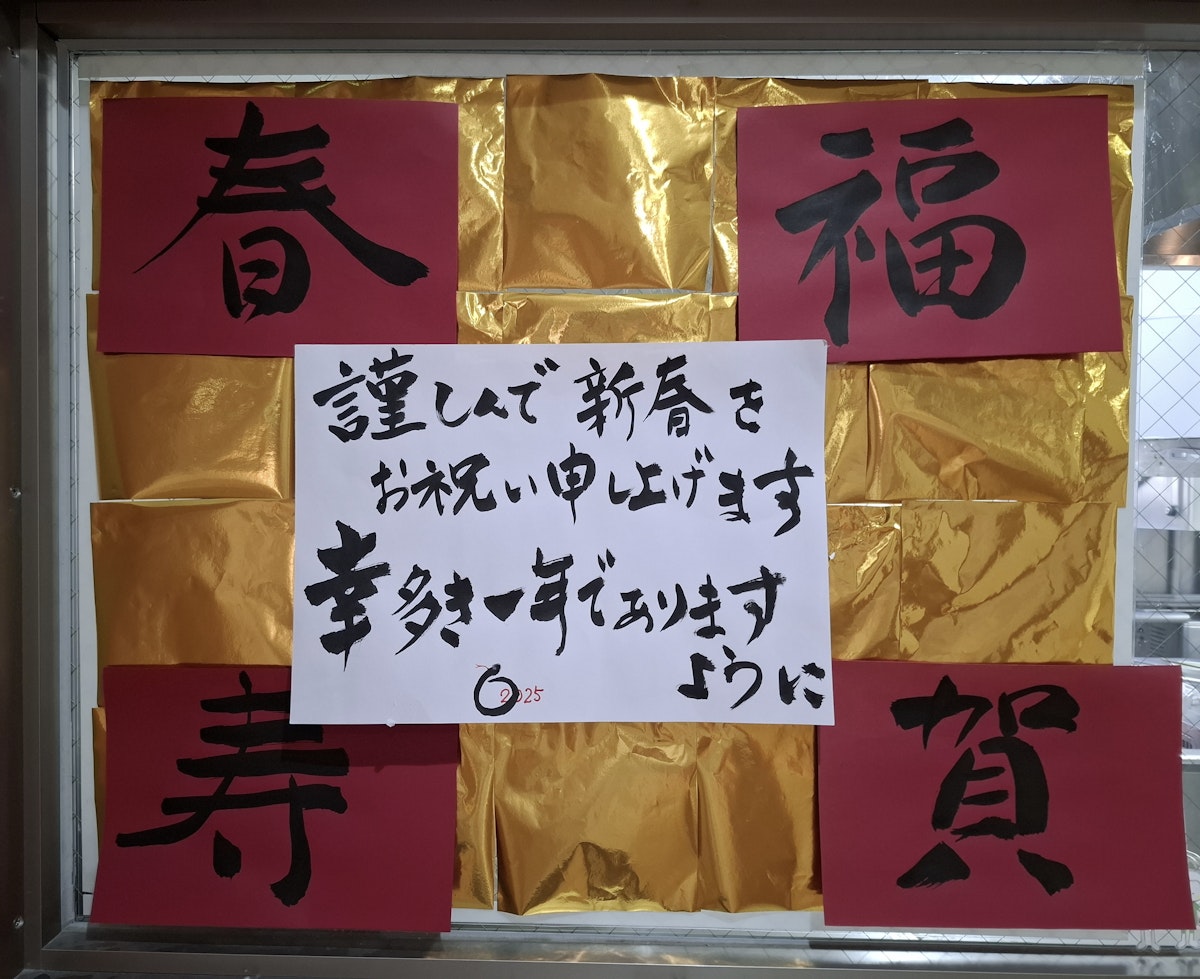 春
福
謹しんで新春を
お祝い申し上げます
幸多き一年であります
ように
2025
寿
賀